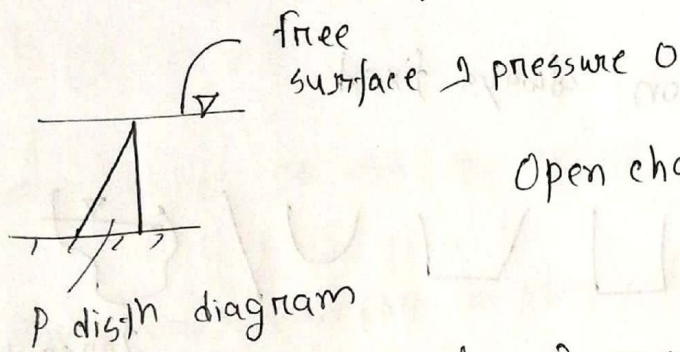 free
surface pressure 0
Open cha
P distn diagram